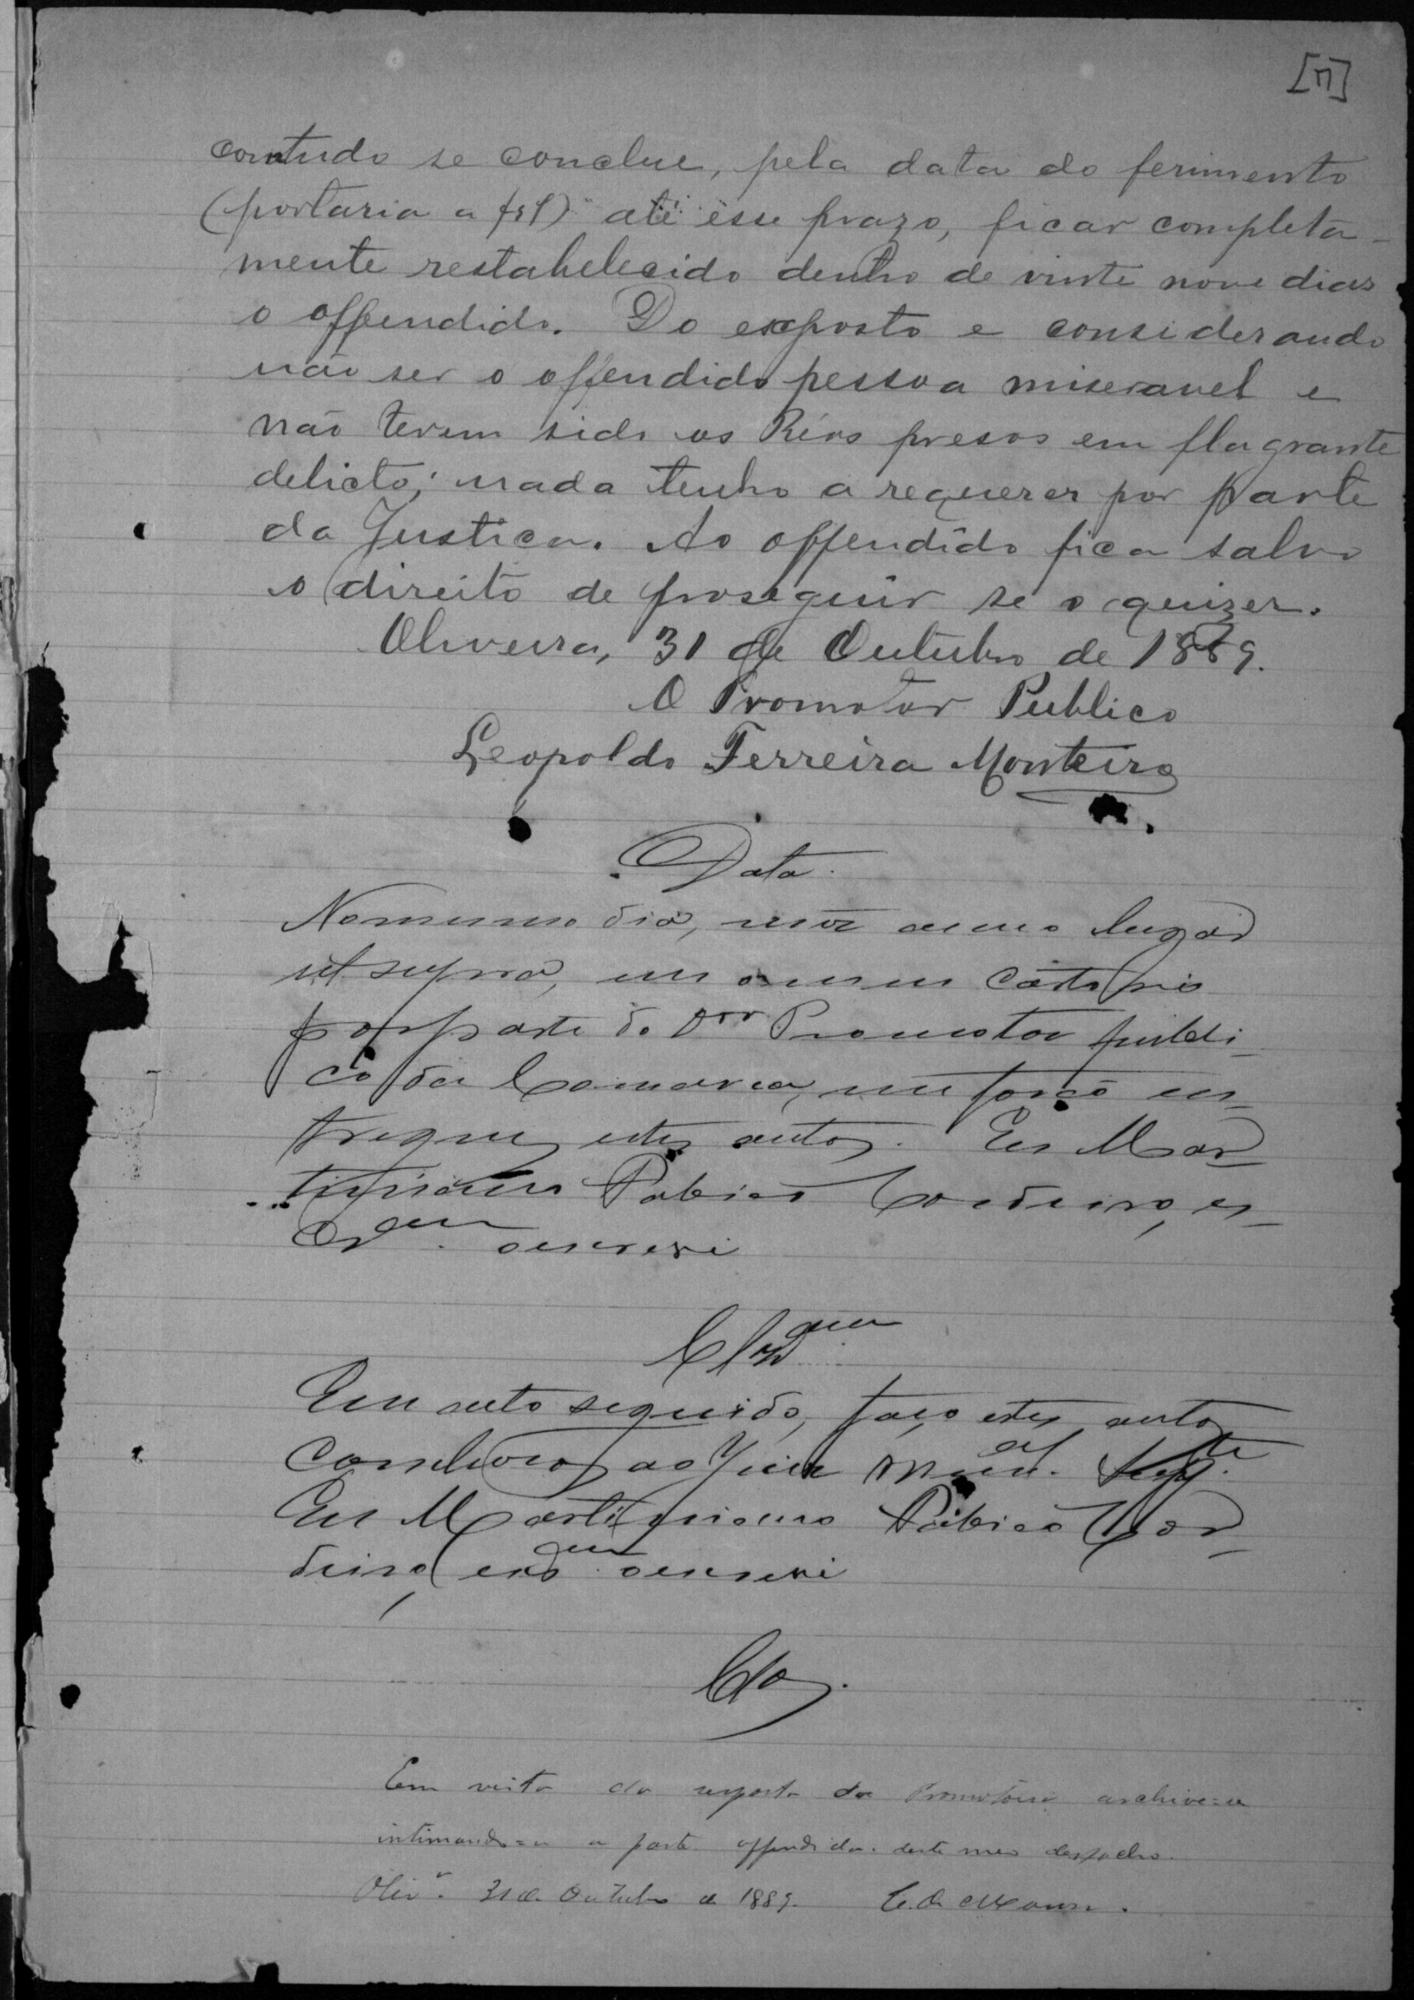 [17]
comtudo se conclue, pela data do ferimento
(portaria a fs 1) até esse prazo, ficar completa-
mente restabelecido dentro de vinte nove dias
o offendido. Do exposto e considerando
não ser o offendido pessoa miseravel e
não terem sido os Réos presos em flagrante
delicto; nada tenho a requerer por parte
da Justiça. Ao offendido fica salvo
o direito de proseguir se o quizer.
Oliveira, 31 de Outubro de 1889.
O Promotor Publico
Leopoldo Ferreira Monteiro
Data
No mesmo dia, mez anno e lugar
ut supra, em meu cartorio
por parte do Dor Promotor publi-
co da Comarca, me forão en-
tregues estes autos. Eu Mar-
tiniano Cordeiro, es-
cram o escrevi
Clzam
Em acto seguido, faço estes autos
conclusos ao Juiz Mal
Eu Martiniano Cor-
deiro, escam o escrevi
Clos.
Em vista da resposta da Promotoria archive-se
intimando-se a parte offendida deste meo despacho.
Olivra. 31 de Outubro de 1889.